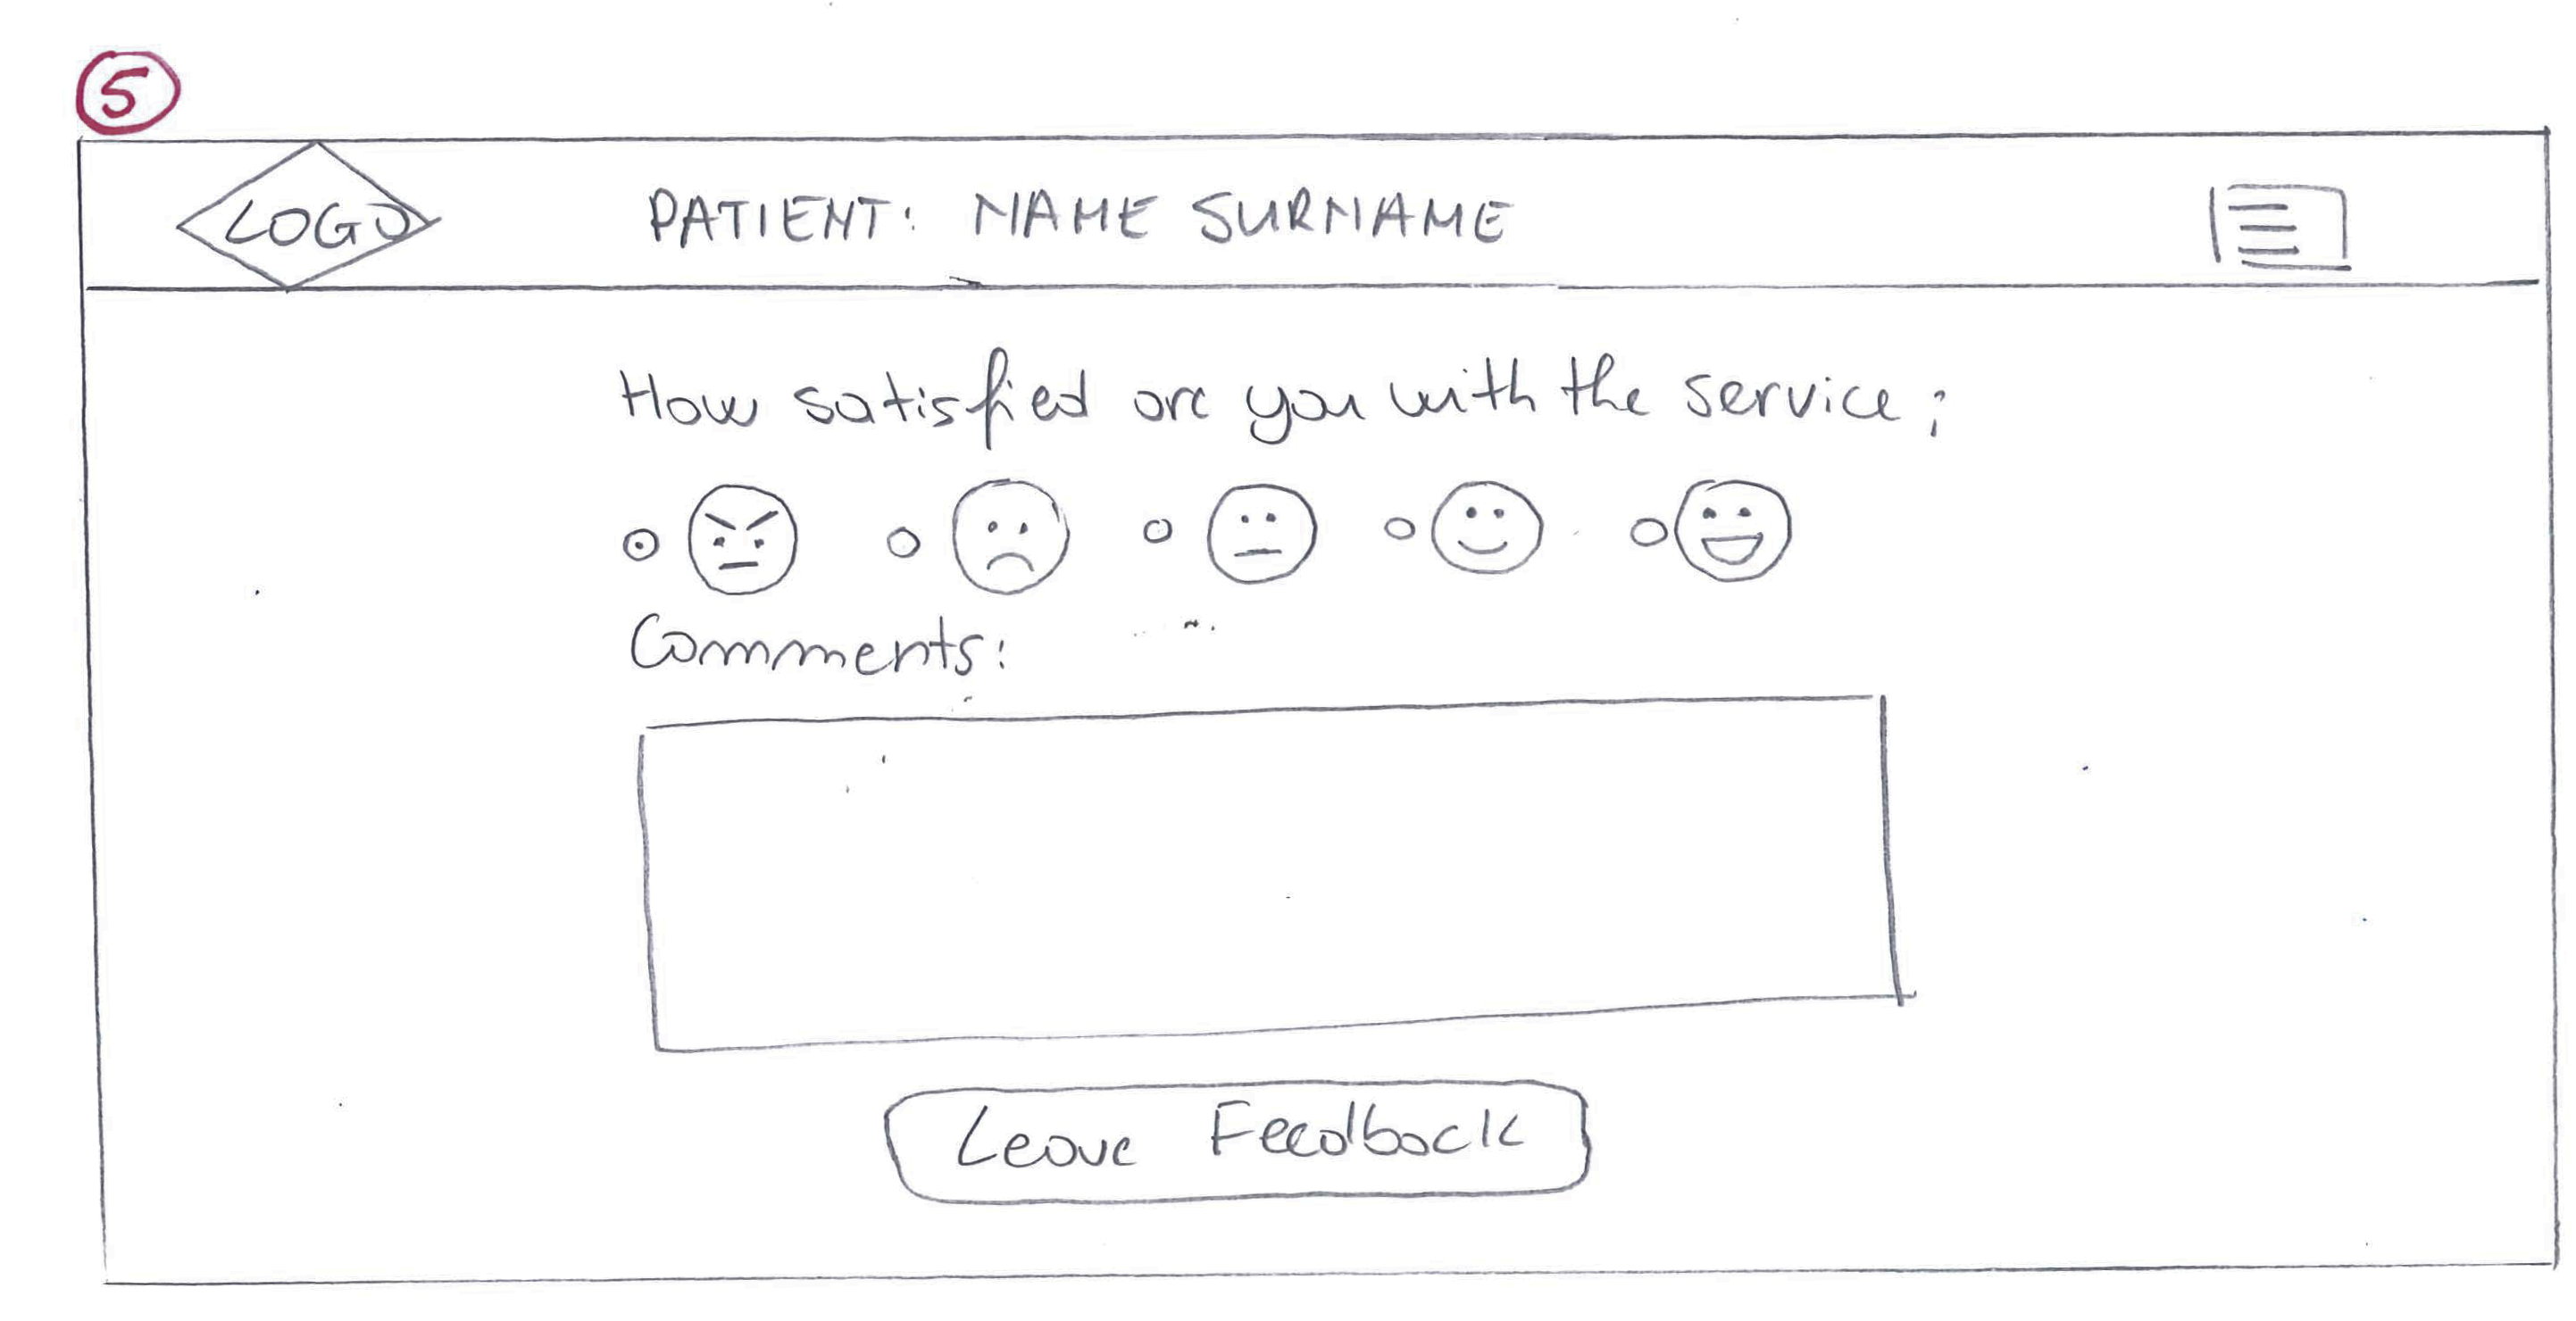 5
LOGO PATIENT: NAME SURNAME
How satisfied are you with the service;
Comments:
Leave Feedback